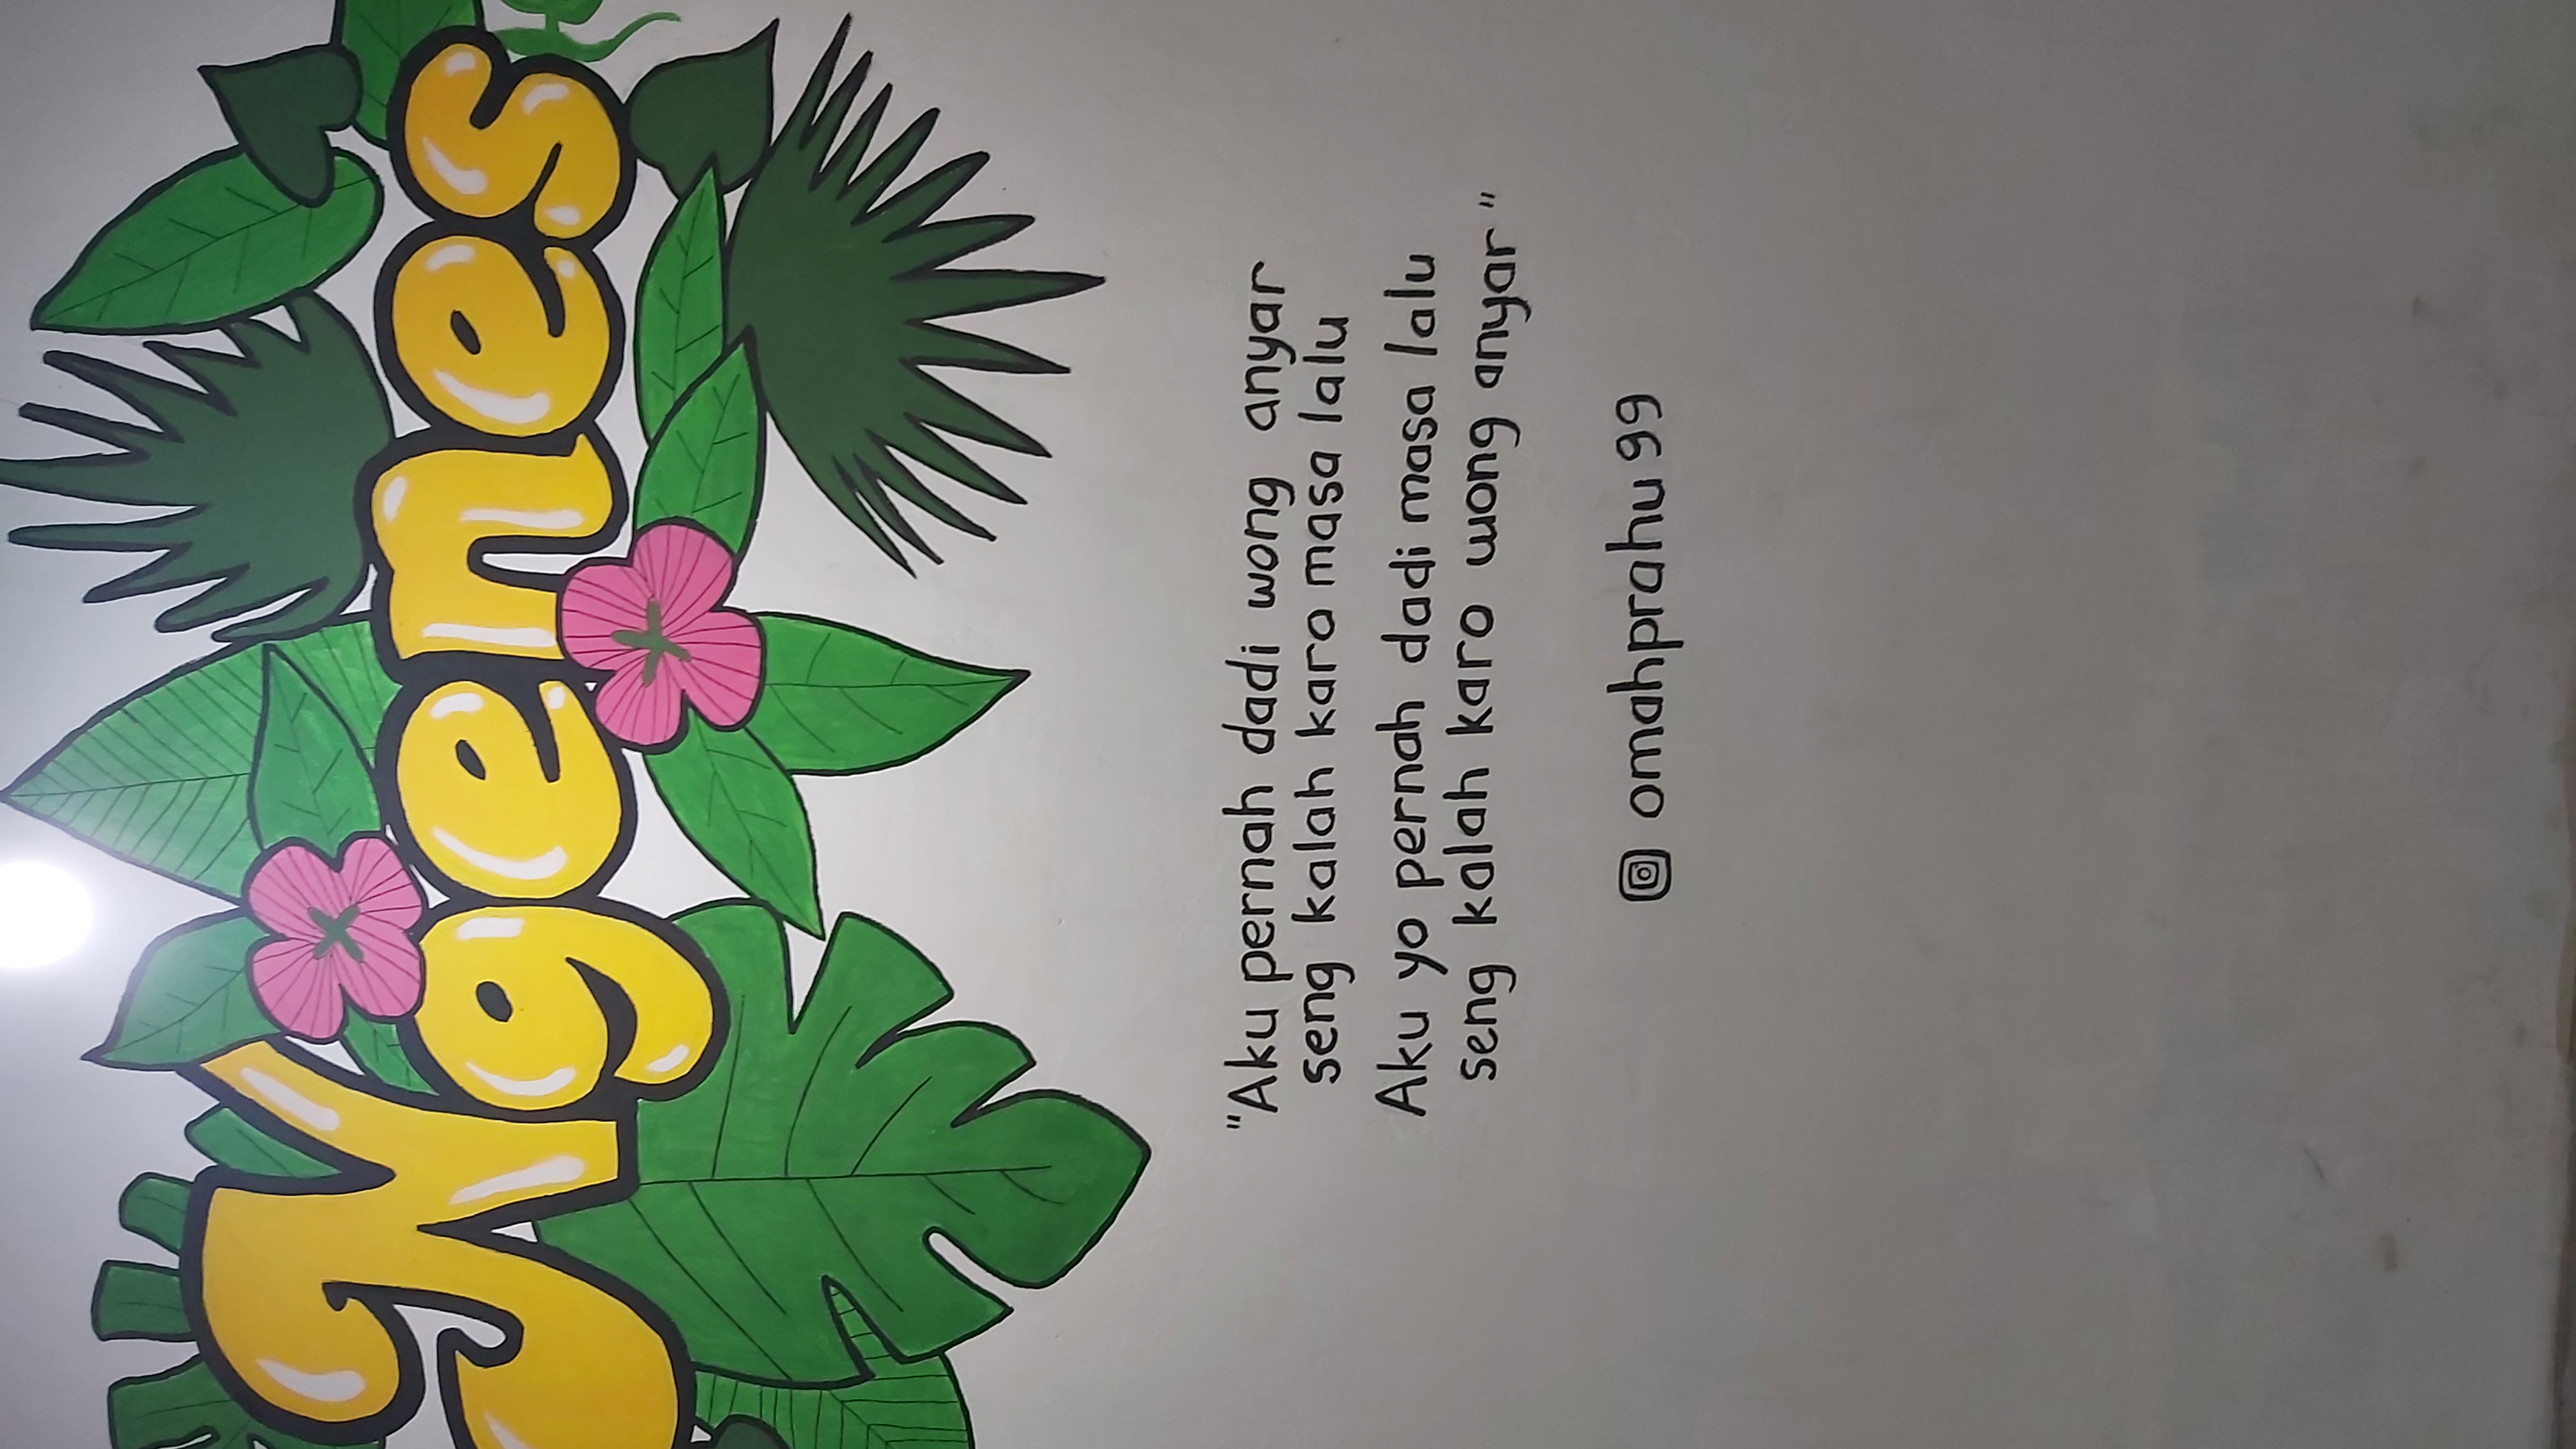 Ngenes
"Aku pernah dadi wong anyar
seng kalah karo masa lalu
Aku yo pernah dadi masa lalu
seng kalah karo wong anyar"
omahprahu99